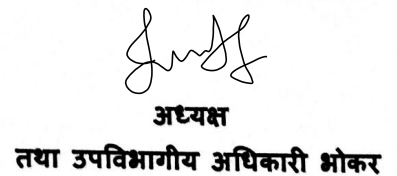 अध्यक्ष
तथा उपविभागीय अधिकारी भोकर